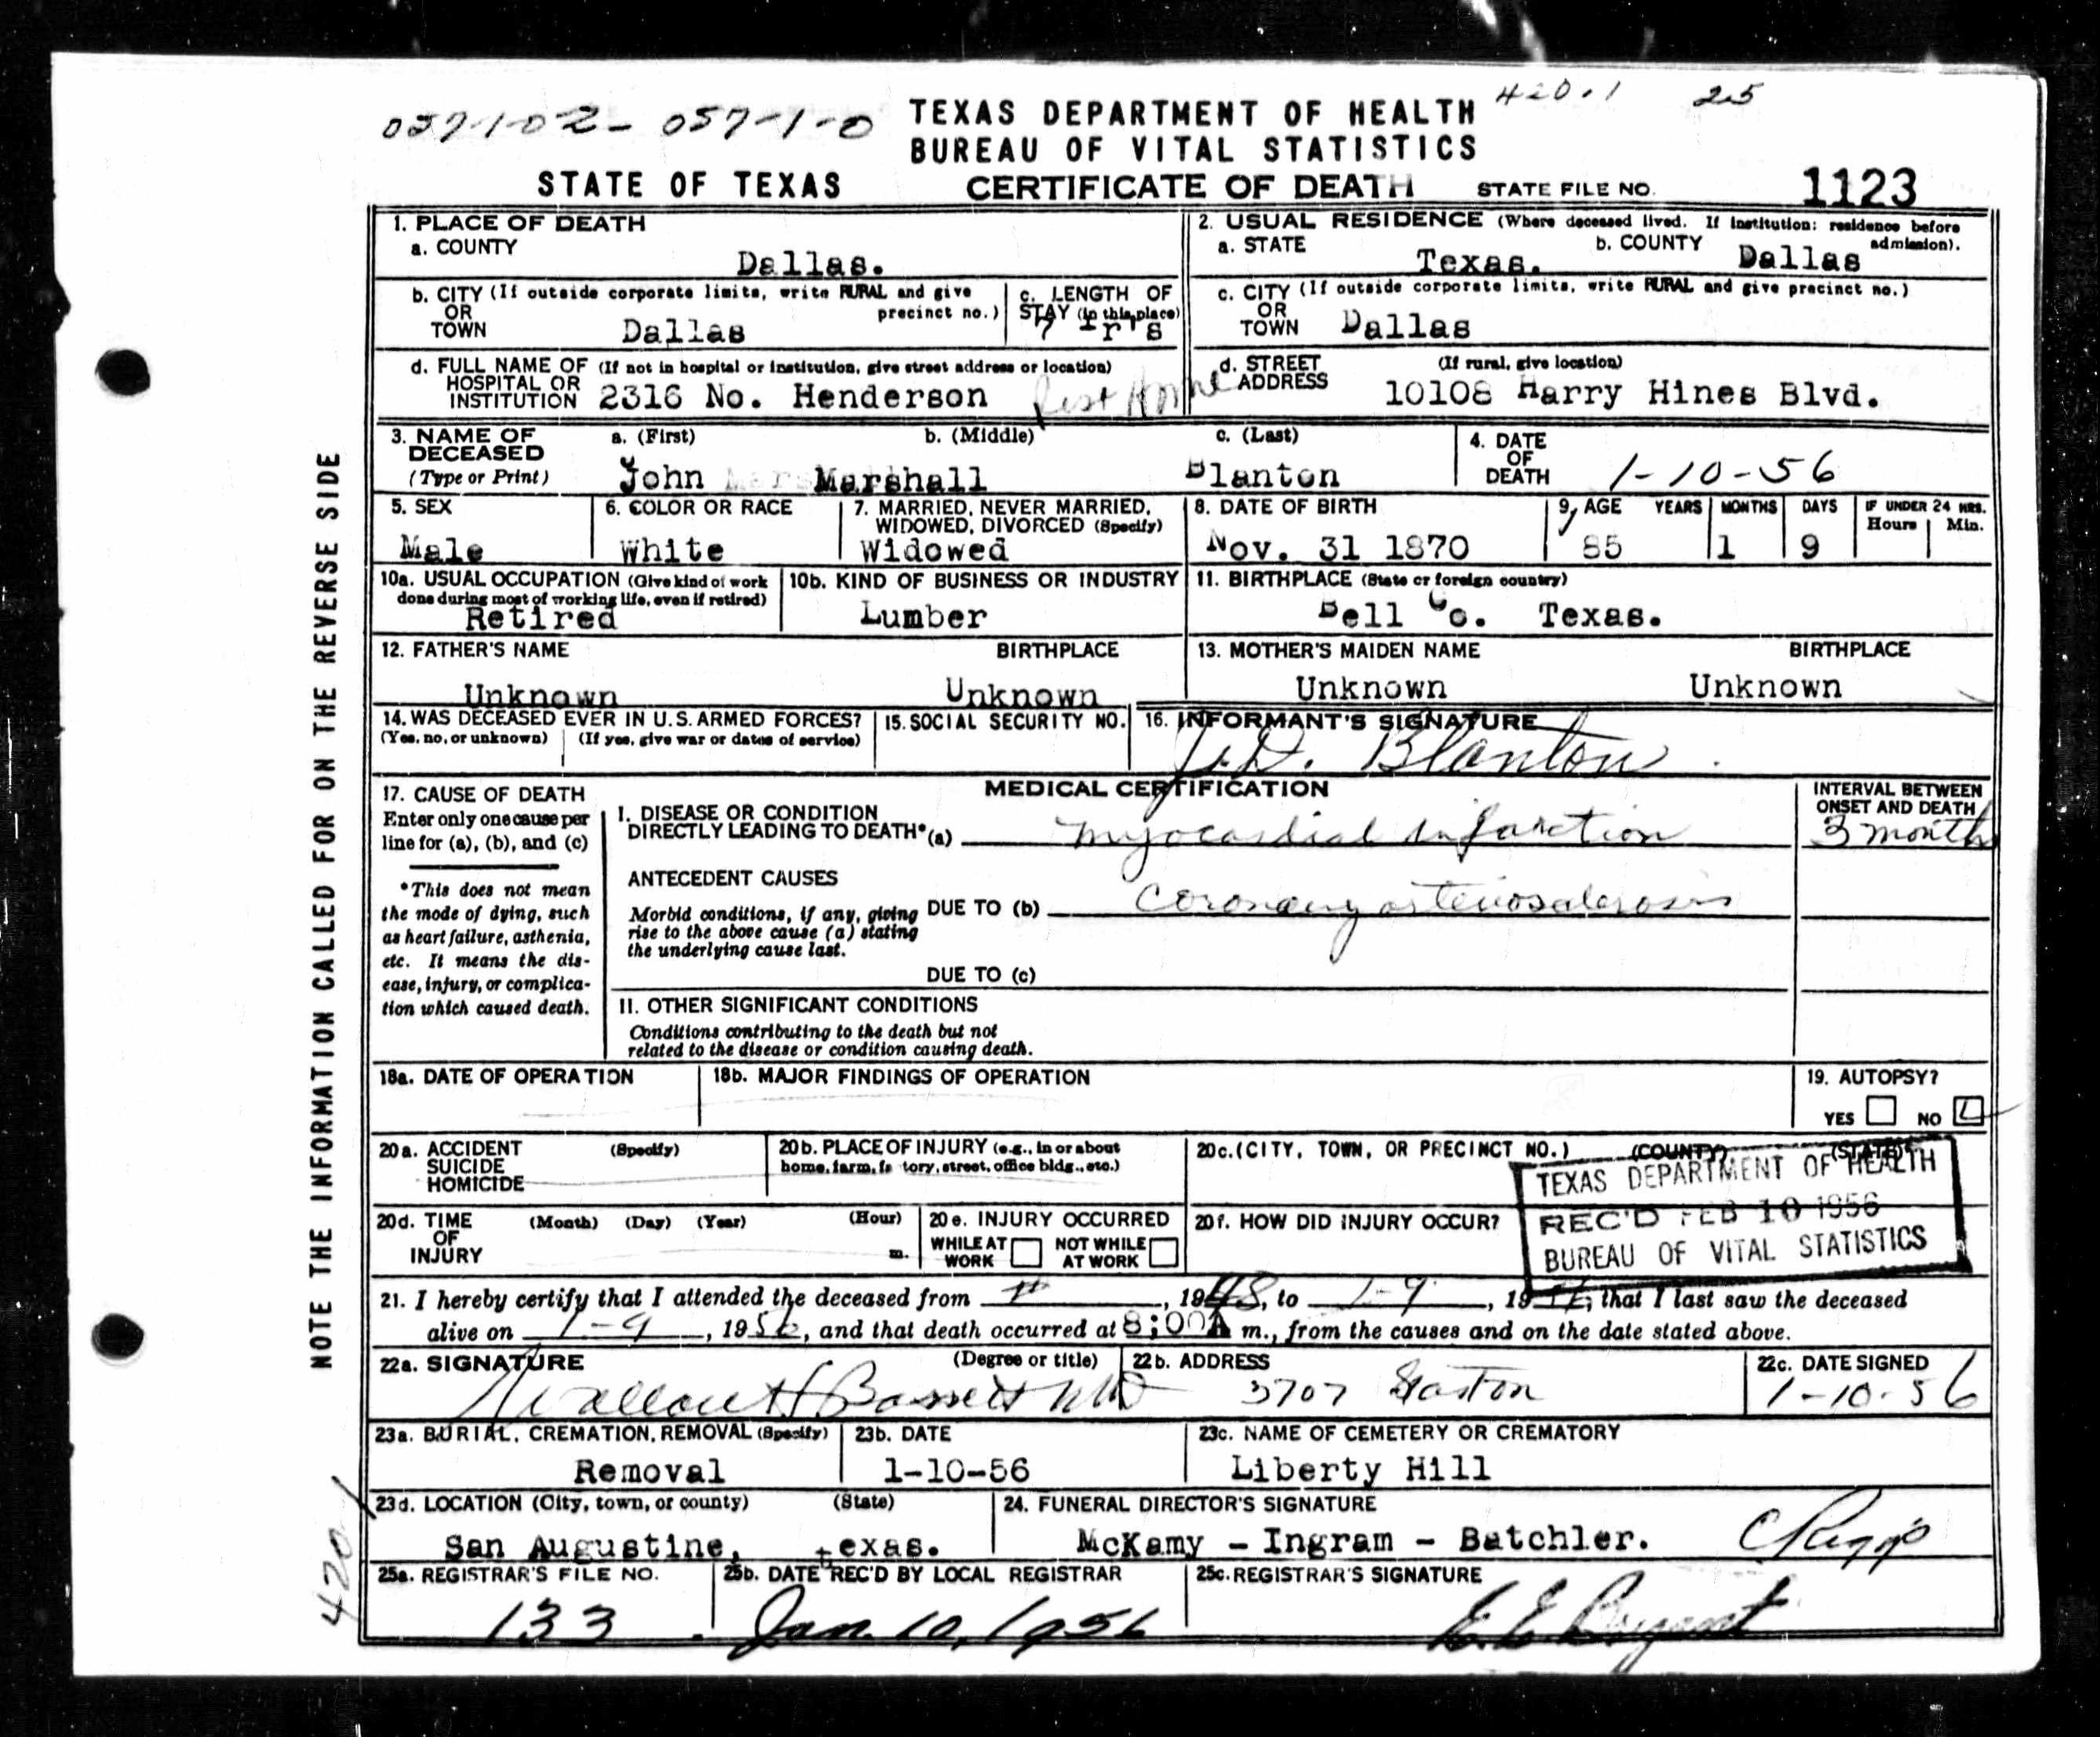 057-1-02- 057-1-0
420.1 25
TEXAS DEPARTMENT OF HEALTH
BUREAU OF VITAL STATISTICS
STATE OF TEXAS CERTIFICATE OF DEATH STATE FILE NO. 1123
NOTE THE INFORMATION CALLED FOR ON THE REVERSE SIDE
1. PLACE OF DEATH
a. COUNTY Dallas.
2. USUAL RESIDENCE (Where deceased lived. If institution: residence before admission).
a. STATE Texas. b. COUNTY Dallas
b. CITY (If outside corporate limits, write RURAL and give precinct no.)
OR
TOWN Dallas
c. LENGTH OF
STAY (in this place)
7 Yr's
c. CITY (If outside corporate limits, write RURAL and give precinct no.)
OR
TOWN Dallas
d. FULL NAME OF (If not in hospital or institution, give street address or location)
HOSPITAL OR
INSTITUTION 2316 No. Henderson Rest Home
d. STREET (If rural, give location)
ADDRESS 10108 Harry Hines Blvd.
3. NAME OF DECEASED (Type or Print)
a. (First) b. (Middle) c. (Last)
John Marshall Blanton
4. DATE OF DEATH 1-10-56
5. SEX
Male
6. COLOR OR RACE
White
7. MARRIED, NEVER MARRIED, WIDOWED, DIVORCED (Specify)
Widowed
8. DATE OF BIRTH
Nov. 31 1870
9. AGE YEARS MONTHS DAYS IF UNDER 24 HRS. Hours Min.
85 1 9
10a. USUAL OCCUPATION (Give kind of work done during most of working life, even if retired)
Retired
10b. KIND OF BUSINESS OR INDUSTRY
Lumber
11. BIRTHPLACE (State or foreign country)
Bell Co. Texas.
12. FATHER'S NAME BIRTHPLACE
Unknown Unknown
13. MOTHER'S MAIDEN NAME BIRTHPLACE
Unknown Unknown
14. WAS DECEASED EVER IN U.S. ARMED FORCES?
(Yes, no, or unknown) (If yes, give war or dates of service)
15. SOCIAL SECURITY NO.
16. INFORMANT'S SIGNATURE
J.D. Blanton
MEDICAL CERTIFICATION
17. CAUSE OF DEATH
Enter only one cause per
line for (a), (b), and (c)
*This does not mean
the mode of dying, such
as heart failure, asthenia,
etc. It means the dis-
ease, injury, or complica-
tion which caused death.
I. DISEASE OR CONDITION
DIRECTLY LEADING TO DEATH* (a) Myocardial Infarction
INTERVAL BETWEEN
ONSET AND DEATH
3 months
ANTECEDENT CAUSES
Morbid conditions, if any, giving
rise to the above cause (a) stating
the underlying cause last.
DUE TO (b) Coronary arteriosclerosis
DUE TO (c)
II. OTHER SIGNIFICANT CONDITIONS
Conditions contributing to the death but not
related to the disease or condition causing death.
18a. DATE OF OPERATION
18b. MAJOR FINDINGS OF OPERATION
19. AUTOPSY?
YES NO
20a. ACCIDENT (Specify)
SUICIDE
HOMICIDE
20b. PLACE OF INJURY (e.g., in or about
home, farm, fa tory, street, office bldg., etc.)
20c. (CITY, TOWN, OR PRECINCT NO.) (COUNTY) (STATE)
20d. TIME (Month) (Day) (Year) (Hour)
OF
INJURY m.
20e. INJURY OCCURRED
WHILE AT WORK NOT WHILE AT WORK
20f. HOW DID INJURY OCCUR?
TEXAS DEPARTMENT OF HEALTH
REC'D FEB 10 1956
BUREAU OF VITAL STATISTICS
21. I hereby certify that I attended the deceased from , 1948, to 1-9, 1956, that I last saw the deceased
alive on 1-9, 1956, and that death occurred at 8:00A m., from the causes and on the date stated above.
22a. SIGNATURE (Degree or title)
Wallace H Bassett MD
22b. ADDRESS
3707 Gaston
22c. DATE SIGNED
1-10-56
23a. BURIAL, CREMATION, REMOVAL (Specify)
Removal
23b. DATE
1-10-56
23c. NAME OF CEMETERY OR CREMATORY
Liberty Hill
23d. LOCATION (City, town, or county) (State)
San Augustine, texas.
24. FUNERAL DIRECTOR'S SIGNATURE
McKamy - Ingram - Batchler.
25a. REGISTRAR'S FILE NO.
133
25b. DATE REC'D BY LOCAL REGISTRAR
Jan. 10, 1956
25c. REGISTRAR'S SIGNATURE
E E Bryant
420.1